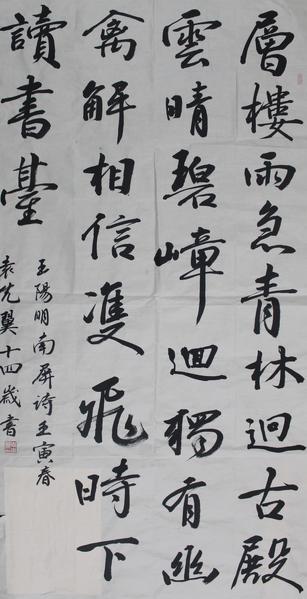 層樓雨急青林迥古殿
雲晴碧嶂迴獨有幽
禽解相信雙飛時下
讀書臺
王陽明南屏詩壬寅春
袁先翼十四歲書